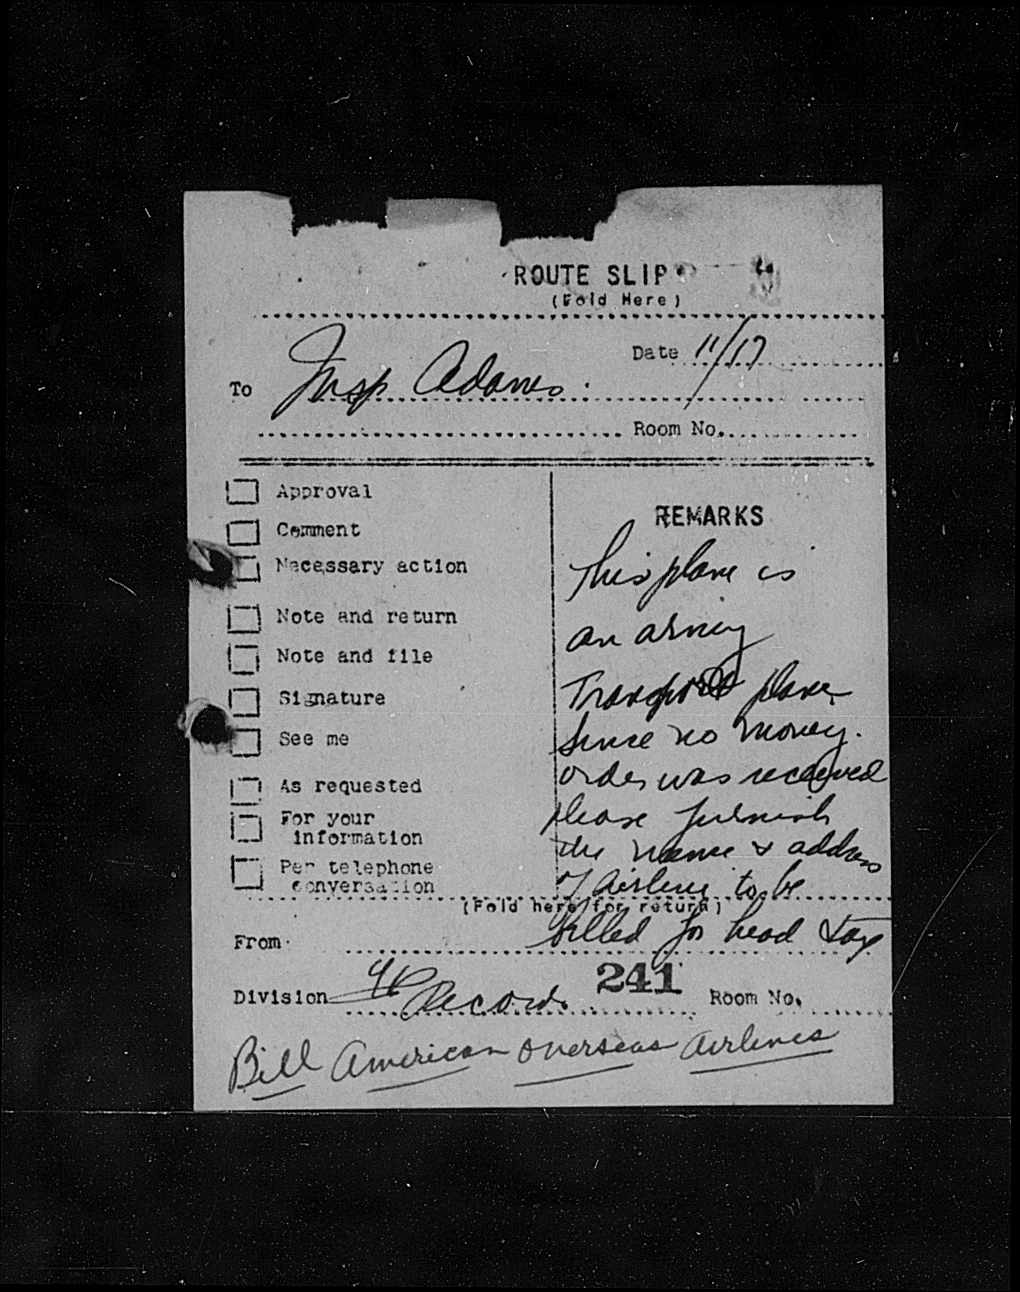 ROUTE SLIP
(Fold Here)
Date 11/17
To Insp Adams.
Room No.
Approval
Comment
Necessary action
Note and return
Note and file
Signature
See me
As requested
For your
information
Per telephone
conversation
REMARKS
This plane is
an army
Transport plane
Since no money
order was received
please furnish
the name & address
of airline to be
(Fold here for return)
billed for head tax
From
Division Records 241 Room No.
Bill American Overseas Airlines